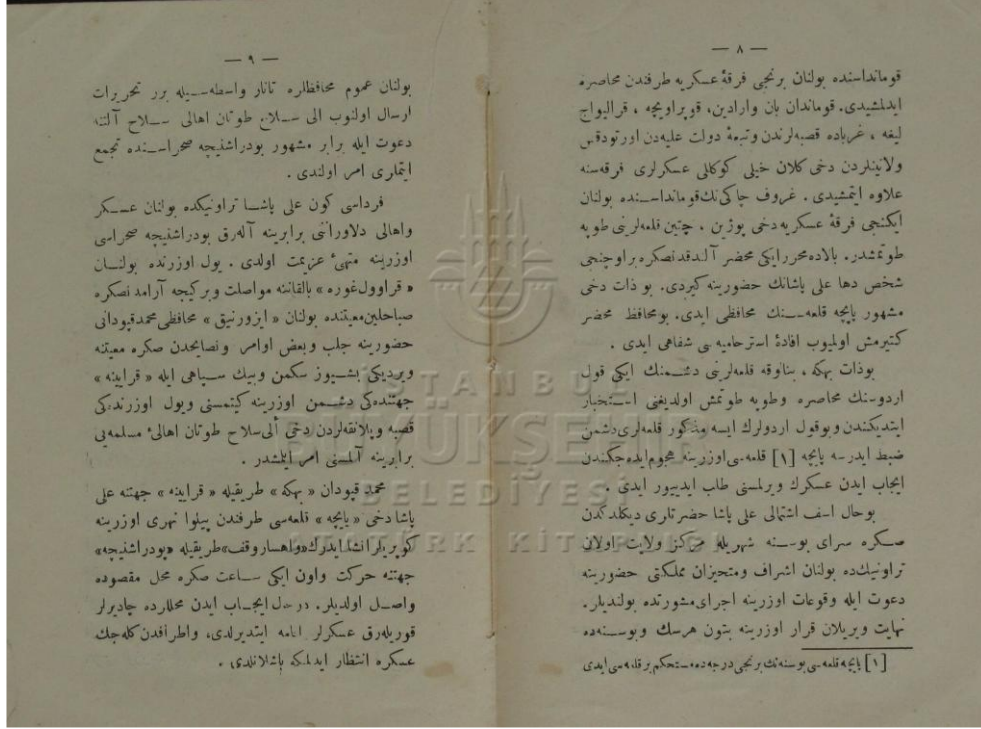 — ٨ —
قومانداسنده بولنان برنجی فرقهٔ عسکریه طرفندن محاصره
ایدلمشیدی. قوماندان بان وارادین، قوپراویچه ، قرالیواج
لیغه ، غرباده قصبه‌لرندن وتبعهٔ دولت علیه‌دن اورتودقس
ولاتینلردن دخی کلان خیلی کوکللی عسکرلری فرقه‌سنه
علاوه ایتمشیدی . غروف چاکی‌نك قومانداسنده بولنان
ایکنجی فرقهٔ عسکریه دخی پوزین ، چتین قلعه‌لرینی طوپه
طوتمشدر. بالاده محرر ایکی محضر آلندقدنصکره براوچنجی
شخص دها علی پاشانك حضورینه کیردی. بو ذات دخی
مشهور یایچه قلعه‌سنك محافظی ایدی. بومحافظ محضر
کتیرمش اولمیوب افادهٔ استرحامیه‌سی شفاهی ایدی .
بوذات بهکه ، بنالوقه قلعه‌لرینی دشمنك ایکی قول
اردوسنك محاصره وطوپه طوتمش اولدیغنی استخبار
ایتدیکندن وبوقول اردولرك ایسه مذکور قلعه‌لری دشمن
ضبط ایدرسه یایچه [١] قلعه‌سی اوزرینه هجوم ایده‌جکندن
ایجاب ایدن عسکرك ویرلمسنی طلب ایدییور ایدی .
بوحال اسف اشتمالی علی پاشا حضرتلری دیکلدکدن
صکره سرای بوسنه شهریله مرکز ولایت اولان
تراونیك‌ده بولنان اشراف ومتحیزان مملکتی حضورینه
دعوت ایله وقوعات اوزرینه اجرای مشورتده بولندیلر.
نهایت ویریلان قرار اوزرینه بتون هرسك وبوسنه‌ده
[١] یایچه قلعه‌سی بوسنه‌نك برنجی درجه‌ده مستحکم بر قلعه‌سی ایدی
— ٩ —
بولنان عموم محافظلره تاتار واسطه‌سیله برر تحریرات
ارسال اولنوب الی سلاح طوتان اهالی سلاح آلتنه
دعوت ایله برابر مشهور بودراشنیچه صحراسنده تجمع
ایتملری امر اولندی .
فرداسی کون علی پاشا تراونیکده بولنان عسکر
واهالی دلاوراننی برابرینه آله‌رق بودراشنیچه صحراسی
اوزرینه متهیٔ عزیمت اولدی . یول اوزرنده بولنان
« قراوول‌غوره » بالقاننه مواصلت وبرکیجه آرامدنصکره
صباحلین معیتنده بولنان « ایزورنیق » محافظی محمد قپودانی
حضورینه جلب وبعض اوامر ونصایحدن صکره معیتنه
ویردیکی بشیوز سکمن وبیك سپاهی ایله « قراینه »
جهتنده‌کی دشمن اوزرینه کیتمسنی ویول اوزرنده‌کی
قصبه وپلانقه‌لردن دخی ألی سلاح طوتان اهالیٔ مسلمه‌یی
برابرینه آلمسنی امر ایلمشدر .
محمد قپودان « بهکه » طریقیله « قراینه » جهتنه علی
پاشا دخی « یایچه » قلعه‌سی طرفندن پیلوا نهری اوزرینه
کوپریلر انشا ایدرك «واهسار وقف» طریقیله «بودراشنیچه»
جهتنه حرکت واون ایکی ساعت صکره محل مقصوده
واصل اولدیلر. درحال ایجاب ایدن محللرده چادیرلر
قوریله‌رق عسکرلر اقامه ایتدیرلدی، واطرافدن کله‌جك
عسکره انتظار ایدلمکه باشلانلدی .
ISTANBUL
BÜYÜKŞEHİR
BELEDİYESİ
ATATÜRK KİTAPLIĞI